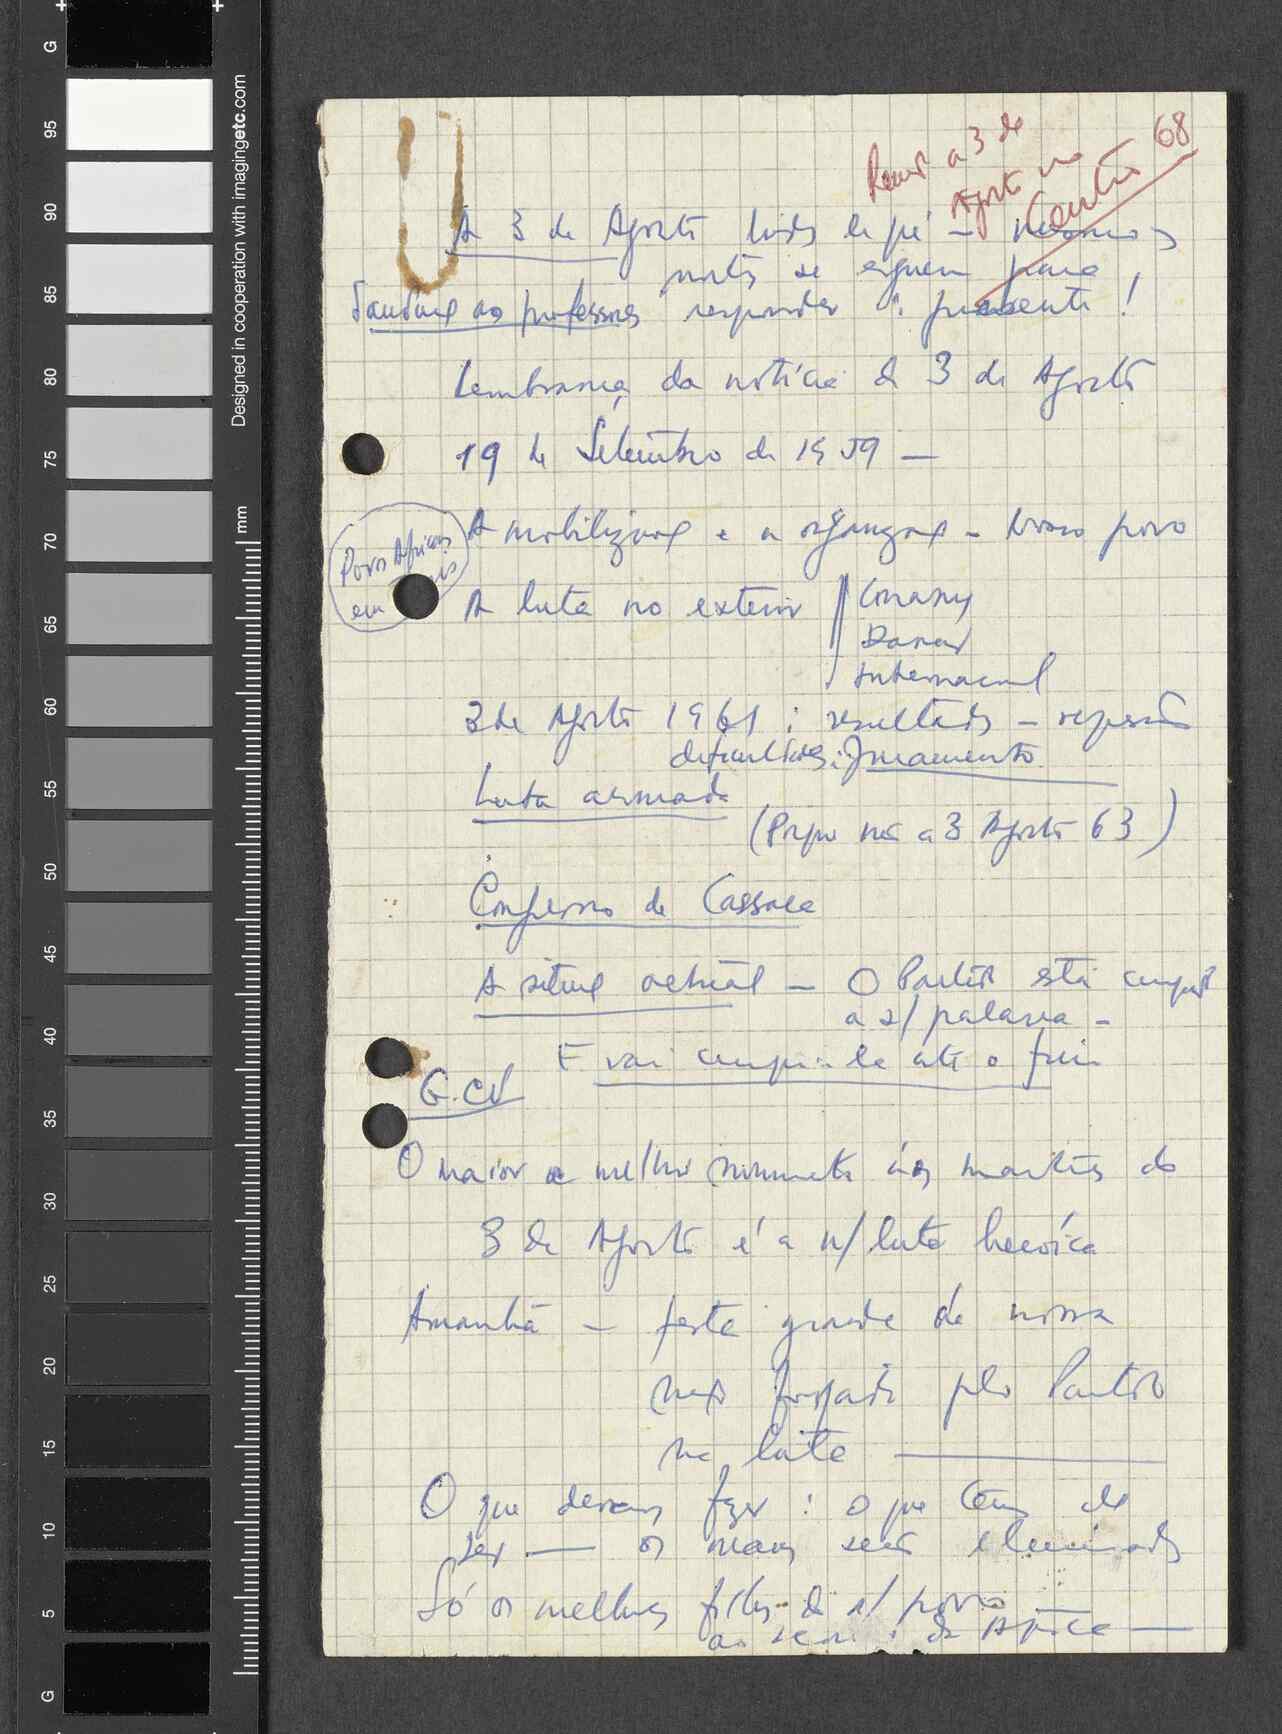 G
95
90
85
80
75
70
65
60
55
50
45
40
35
30
25
20
15
10
5
G
Designed in cooperation with imagingetc.com
mm
a 3 de
Agosto no
68
A 3 de Agosto todos de pé — nossos
mortos se erguem para
aos professores responder: presente!
Lembrança da notícia do 3 de Agosto
19 de Setembro de 1959 —
A mobilização e a organização - nosso povo
Povos Africanos
em
A luta no exterior
Conakry
Dakar
Internacional
3 de Agosto 1961: resultados — repressão
dificuldades: Juramento
Luta armada
( a 3 Agosto 63)
de Cassaca
A situação actual — O Partido está
a s/ palavra -
E vai cumpri-la até o fim
G. CV
O maior e melhor monumento aos martires do
3 de Agosto é a n/ luta heróica
Amanhã — festa grande da nossa
forjada pelo Partido
na luta —
O que devemos fazer: o que tem de
ser — os maus serão eliminados
Só os melhores filhos do n/ povo
de África —